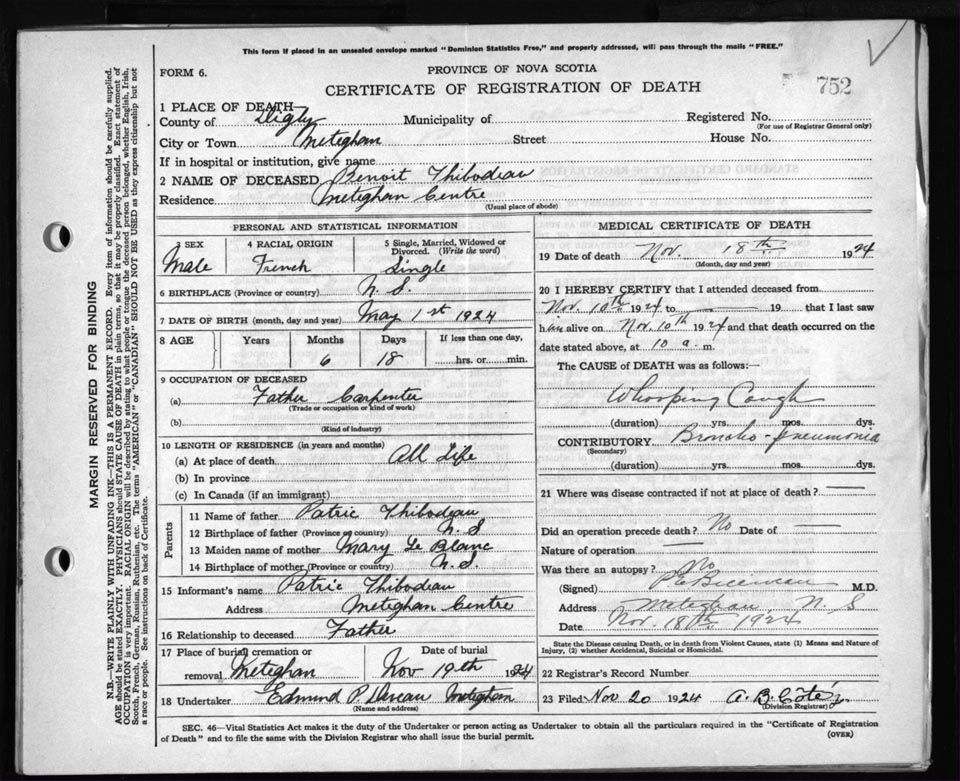 This form if placed in an unsealed envelope marked "Dominion Statistics Free," and properly addressed, will pass through the mails "FREE."
FORM 6.
PROVINCE OF NOVA SCOTIA
CERTIFICATE OF REGISTRATION OF DEATH
752
1 PLACE OF DEATH—
County of Digby Municipality of Registered No.
(For use of Registrar General only)
City or Town Meteghan Street House No.
If in hospital or institution, give name
2 NAME OF DECEASED Benoit Thibodeau
Residence Meteghan Centre
(Usual place of abode)
PERSONAL AND STATISTICAL INFORMATION
3 SEX 4 RACIAL ORIGIN 5 Single, Married, Widowed or Divorced. (Write the word)
Male French Single
6 BIRTHPLACE (Province or country) N. S.
7 DATE OF BIRTH (month, day and year) May 1st 1924
8 AGE Years Months Days If less than one day,
6 18 hrs. or min.
9 OCCUPATION OF DECEASED
(a) Father Carpenter
(Trade or occupation or kind of work)
(b)
(Kind of industry)
10 LENGTH OF RESIDENCE (in years and months)
(a) At place of death All Life
(b) In province
(c) In Canada (if an immigrant)
Parents
11 Name of father Patric Thibodeau
12 Birthplace of father (Province or country) N. S
13 Maiden name of mother Mary Le Blanc
14 Birthplace of mother (Province or country) N. S.
15 Informant's name Patric Thibodeau
Address Meteghan Centre
16 Relationship to deceased Father
17 Place of burial, cremation or removal Meteghan Date of burial Nov 19th 1924
18 Undertaker Edmund P. Meteghan
(Name and address)
MEDICAL CERTIFICATE OF DEATH
19 Date of death Nov. 18th 1924
(Month, day and year)
20 I HEREBY CERTIFY that I attended deceased from
Nov. 10th 1924 to — 19 — that I last saw
h im alive on Nov. 10th 1924 and that death occurred on the
date stated above, at 10 a. m.
The CAUSE of DEATH was as follows:—
Whooping Cough
(duration) yrs. mos. dys.
CONTRIBUTORY Broncho-pneumonia
(Secondary)
(duration) yrs. mos. dys.
21 Where was disease contracted if not at place of death? —
Did an operation precede death? No Date of —
Nature of operation —
Was there an autopsy? No
(Signed) M.D.
Address Meteghan, N. S
Date Nov. 18th 1924
State the Disease causing Death, or in death from Violent Causes, state (1) Means and Nature of Injury, (2) whether Accidental, Suicidal or Homicidal.
22 Registrar's Record Number
23 Filed Nov 20 1924 A. B.
(Division Registrar)
SEC. 46—Vital Statistics Act makes it the duty of the Undertaker or person acting as Undertaker to obtain all the particulars required in the "Certificate of Registration
of Death" and to file the same with the Division Registrar who shall issue the burial permit.
(OVER)
MARGIN RESERVED FOR BINDING
N.B.—WRITE PLAINLY WITH UNFADING INK—THIS IS A PERMANENT RECORD. Every item of information should be carefully supplied.
AGE should be stated EXACTLY. PHYSICIANS should STATE CAUSE OF DEATH in plain terms, so that it may be properly classified. Exact statement of
OCCUPATION is very important. RACIAL ORIGIN will be described by stating to what people or tongue the deceased person belonged, whether English, Irish,
Scotch, French, German, Russian, Ruthenian, etc. The terms "AMERICAN" or "CANADIAN" SHOULD NOT BE USED as they express citizenship but not
a race or people. See instructions on back of Certificate.